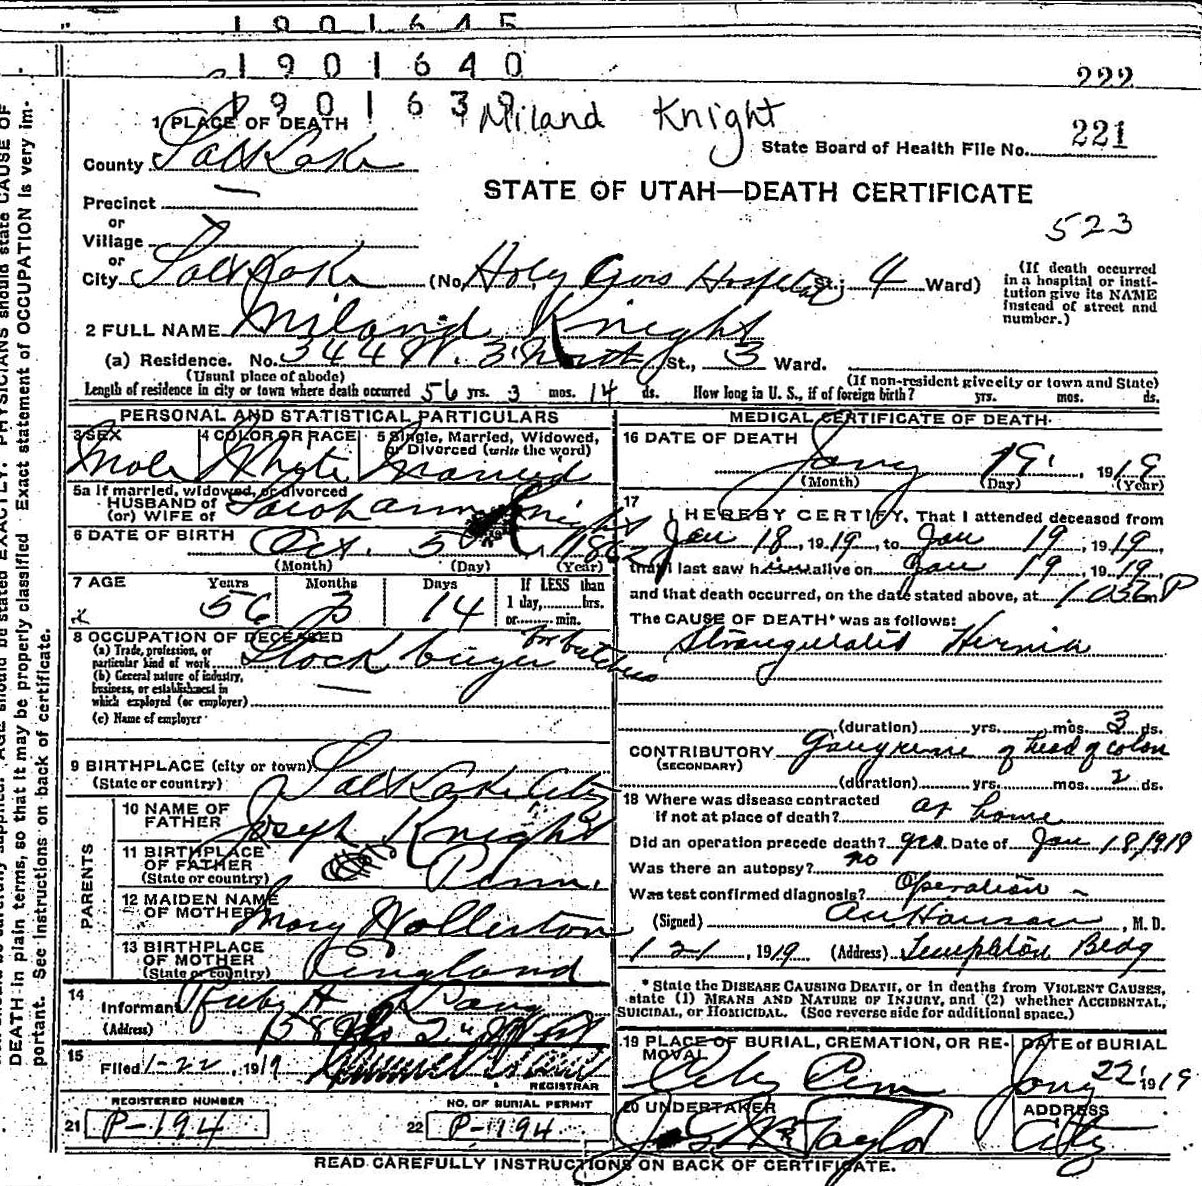 1901645
1901640
222
1901639
Miland Knight
1 PLACE OF DEATH
State Board of Health File No. 221
County Salt Lake
STATE OF UTAH—DEATH CERTIFICATE
Precinct
or
Village
523
or
City Salt Lake (No. Holy Cross Hospital St.; 4 Ward)
(If death occurred in a hospital or institution give its NAME instead of street and number.)
2 FULL NAME Miland Knight
(a) Residence. No. 344 W. 3 North St., 3 Ward.
(Usual place of abode) (If non-resident give city or town and State)
Length of residence in city or town where death occurred 56 yrs. 3 mos. 14 ds. How long in U. S., if of foreign birth? yrs. mos. ds.
PERSONAL AND STATISTICAL PARTICULARS
3 SEX Male
4 COLOR OR RACE Whyte
5 Single, Married, Widowed, or Divorced (write the word) Married
5a If married, widowed, or divorced
HUSBAND of
(or) WIFE of Sarah ann Knight
6 DATE OF BIRTH Oct. 5 1862
(Month) (Day) (Year)
7 AGE Years Months Days If LESS than
56 3 14 1 day,........hrs.
or........min.
8 OCCUPATION OF DECEASED
(a) Trade, profession, or particular kind of work Stock buyer for butchers
(b) General nature of industry, business, or establishment in which employed (or employer)
(c) Name of employer
9 BIRTHPLACE (city or town) Salt Lake City
(State or country)
PARENTS
10 NAME OF FATHER Joseph Knight
11 BIRTHPLACE OF FATHER (State or country) Penn.
12 MAIDEN NAME OF MOTHER Mary Wollerton
13 BIRTHPLACE OF MOTHER (State or country) England
14 Informant Ruby H
(Address)
15 Filed 1-22, 1919
REGISTRAR
REGISTERED NUMBER
21 P-194
NO. OF BURIAL PERMIT
22 P-194
MEDICAL CERTIFICATE OF DEATH
16 DATE OF DEATH Jany 19 1919
(Month) (Day) (Year)
17 I HEREBY CERTIFY, That I attended deceased from
Jan 18, 1919, to Jan 19, 1919,
that I last saw him alive on Jan 19, 1919
and that death occurred, on the date stated above, at P
The CAUSE OF DEATH* was as follows:
Strangulated Hernia
(duration) yrs. mos. 3 ds.
CONTRIBUTORY Gangrene of head of colon
(SECONDARY)
(duration) yrs. mos. 2 ds.
18 Where was disease contracted
if not at place of death? at home
Did an operation precede death? yes Date of Jan 18, 1919
Was there an autopsy? no
Was test confirmed diagnosis? Operation
(Signed) , M. D.
1 21, 1919 (Address) Templeton Bldg
* State the DISEASE CAUSING DEATH, or in deaths from VIOLENT CAUSES,
state (1) MEANS AND NATURE OF INJURY, and (2) whether ACCIDENTAL,
SUICIDAL, or HOMICIDAL. (See reverse side for additional space.)
19 PLACE OF BURIAL, CREMATION, OR REMOVAL City Cem
DATE of BURIAL Jany 22 1919
20 UNDERTAKER Taylor
ADDRESS City
READ CAREFULLY INSTRUCTIONS ON BACK OF CERTIFICATE.
DEATH in plain terms, so that it may be properly classified. Exact statement of OCCUPATION is very im-
portant. See instructions on back of certificate.